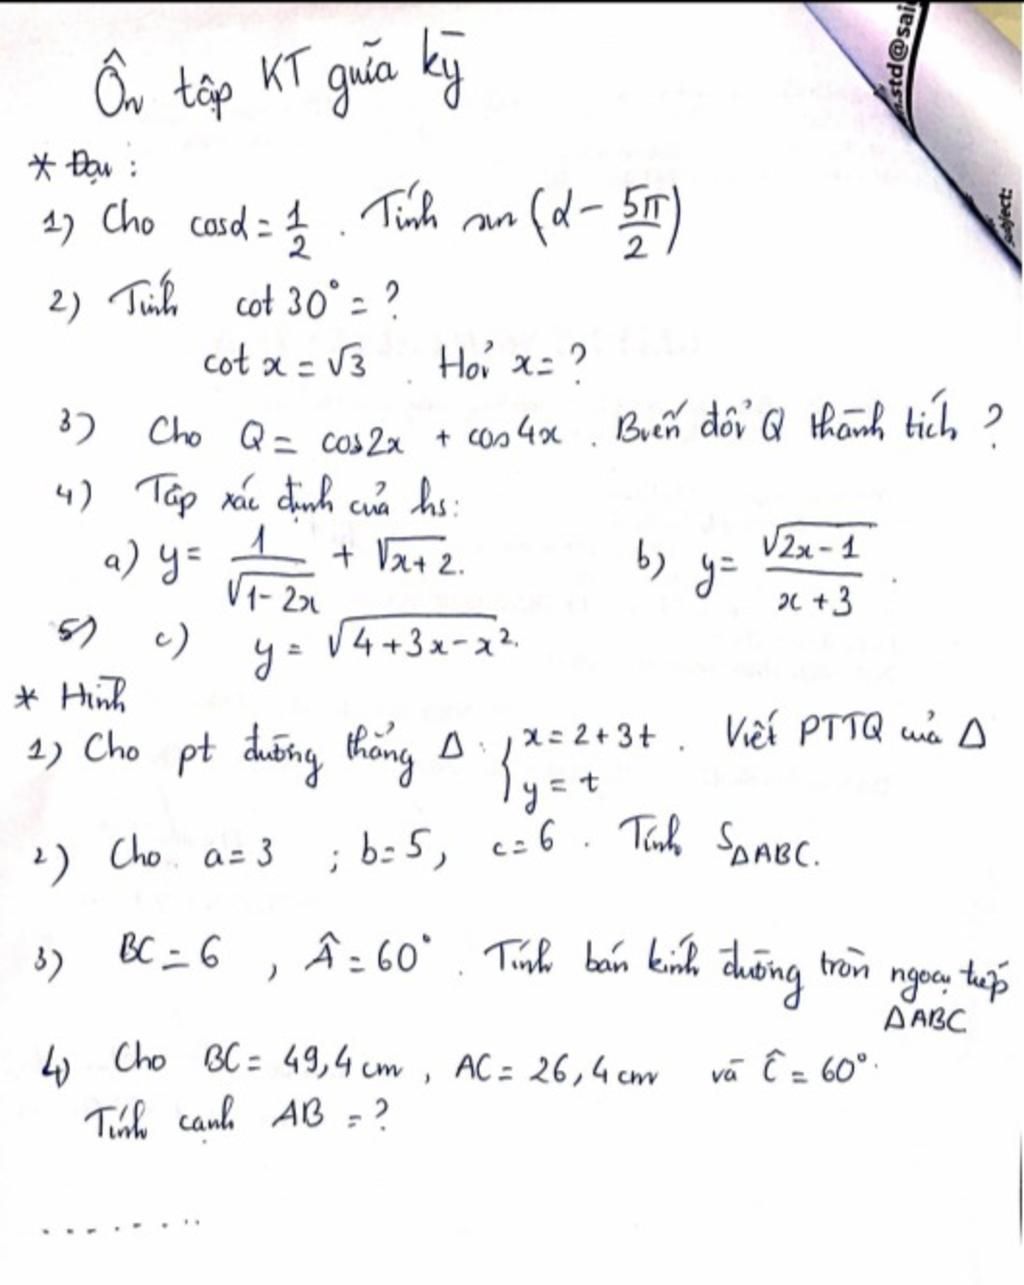 Ôn tập KT giữa kỳ
* Đại :
1) Cho cosα = 1/2 . Tính sin (α - 5π/2)
2) Tính cot 30° = ?
cot x = √3 . Hỏi x = ?
3) Cho Q = cos2x + cos4x . Biến đổi Q thành tích ?
4) Tập xác định của hs:
a) y = 1/√(1-2x) + √(x+2). b) y = √(2x-1)/(x+3) .
5) c) y = √(4+3x-x²).
* Hình
1) Cho pt đường thẳng Δ : { x = 2+3t . Viết PTTQ của Δ
y = t
2) Cho a=3 ; b=5, c=6 . Tính SΔABC.
3) BC = 6 , Â = 60° . Tính bán kính đường tròn ngoại tiếp
ΔABC
4) Cho BC = 49,4 cm , AC = 26,4 cm và Ĉ = 60°.
Tính cạnh AB = ?
.........
.std@sai
subject: